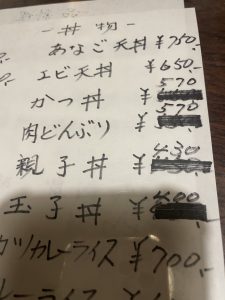 - 丼物 -
あなご天丼 ¥750.-
エビ天丼 ¥650.-
かつ丼 ¥570
肉どんぶり ¥570
親子丼 ¥430
玉子丼 ¥400
カツカレーライス ¥700.-